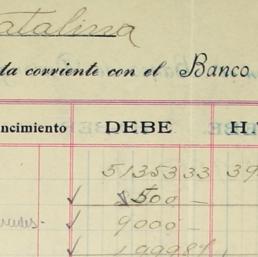 atalina
ta corriente con el Banco
ncimiento DEBE H
51353 33 39
8500 —
9000 —